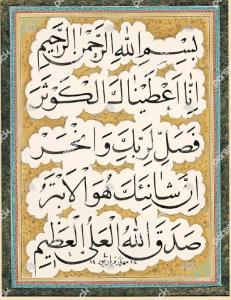 بِسْمِ اللهِ الرَّحْمنِ الرَّحيمِ
اِنّا اَعْطَيْناكَ الْكَوْثَرَ
فَصَلِّ لِرَبِّكَ وَانْحَرْ
اِنَّ شانِئَكَ هُوَ الْاَبْتَرُ
صَدَقَ اللهُ الْعَلِىُّ الْعَظيمُ